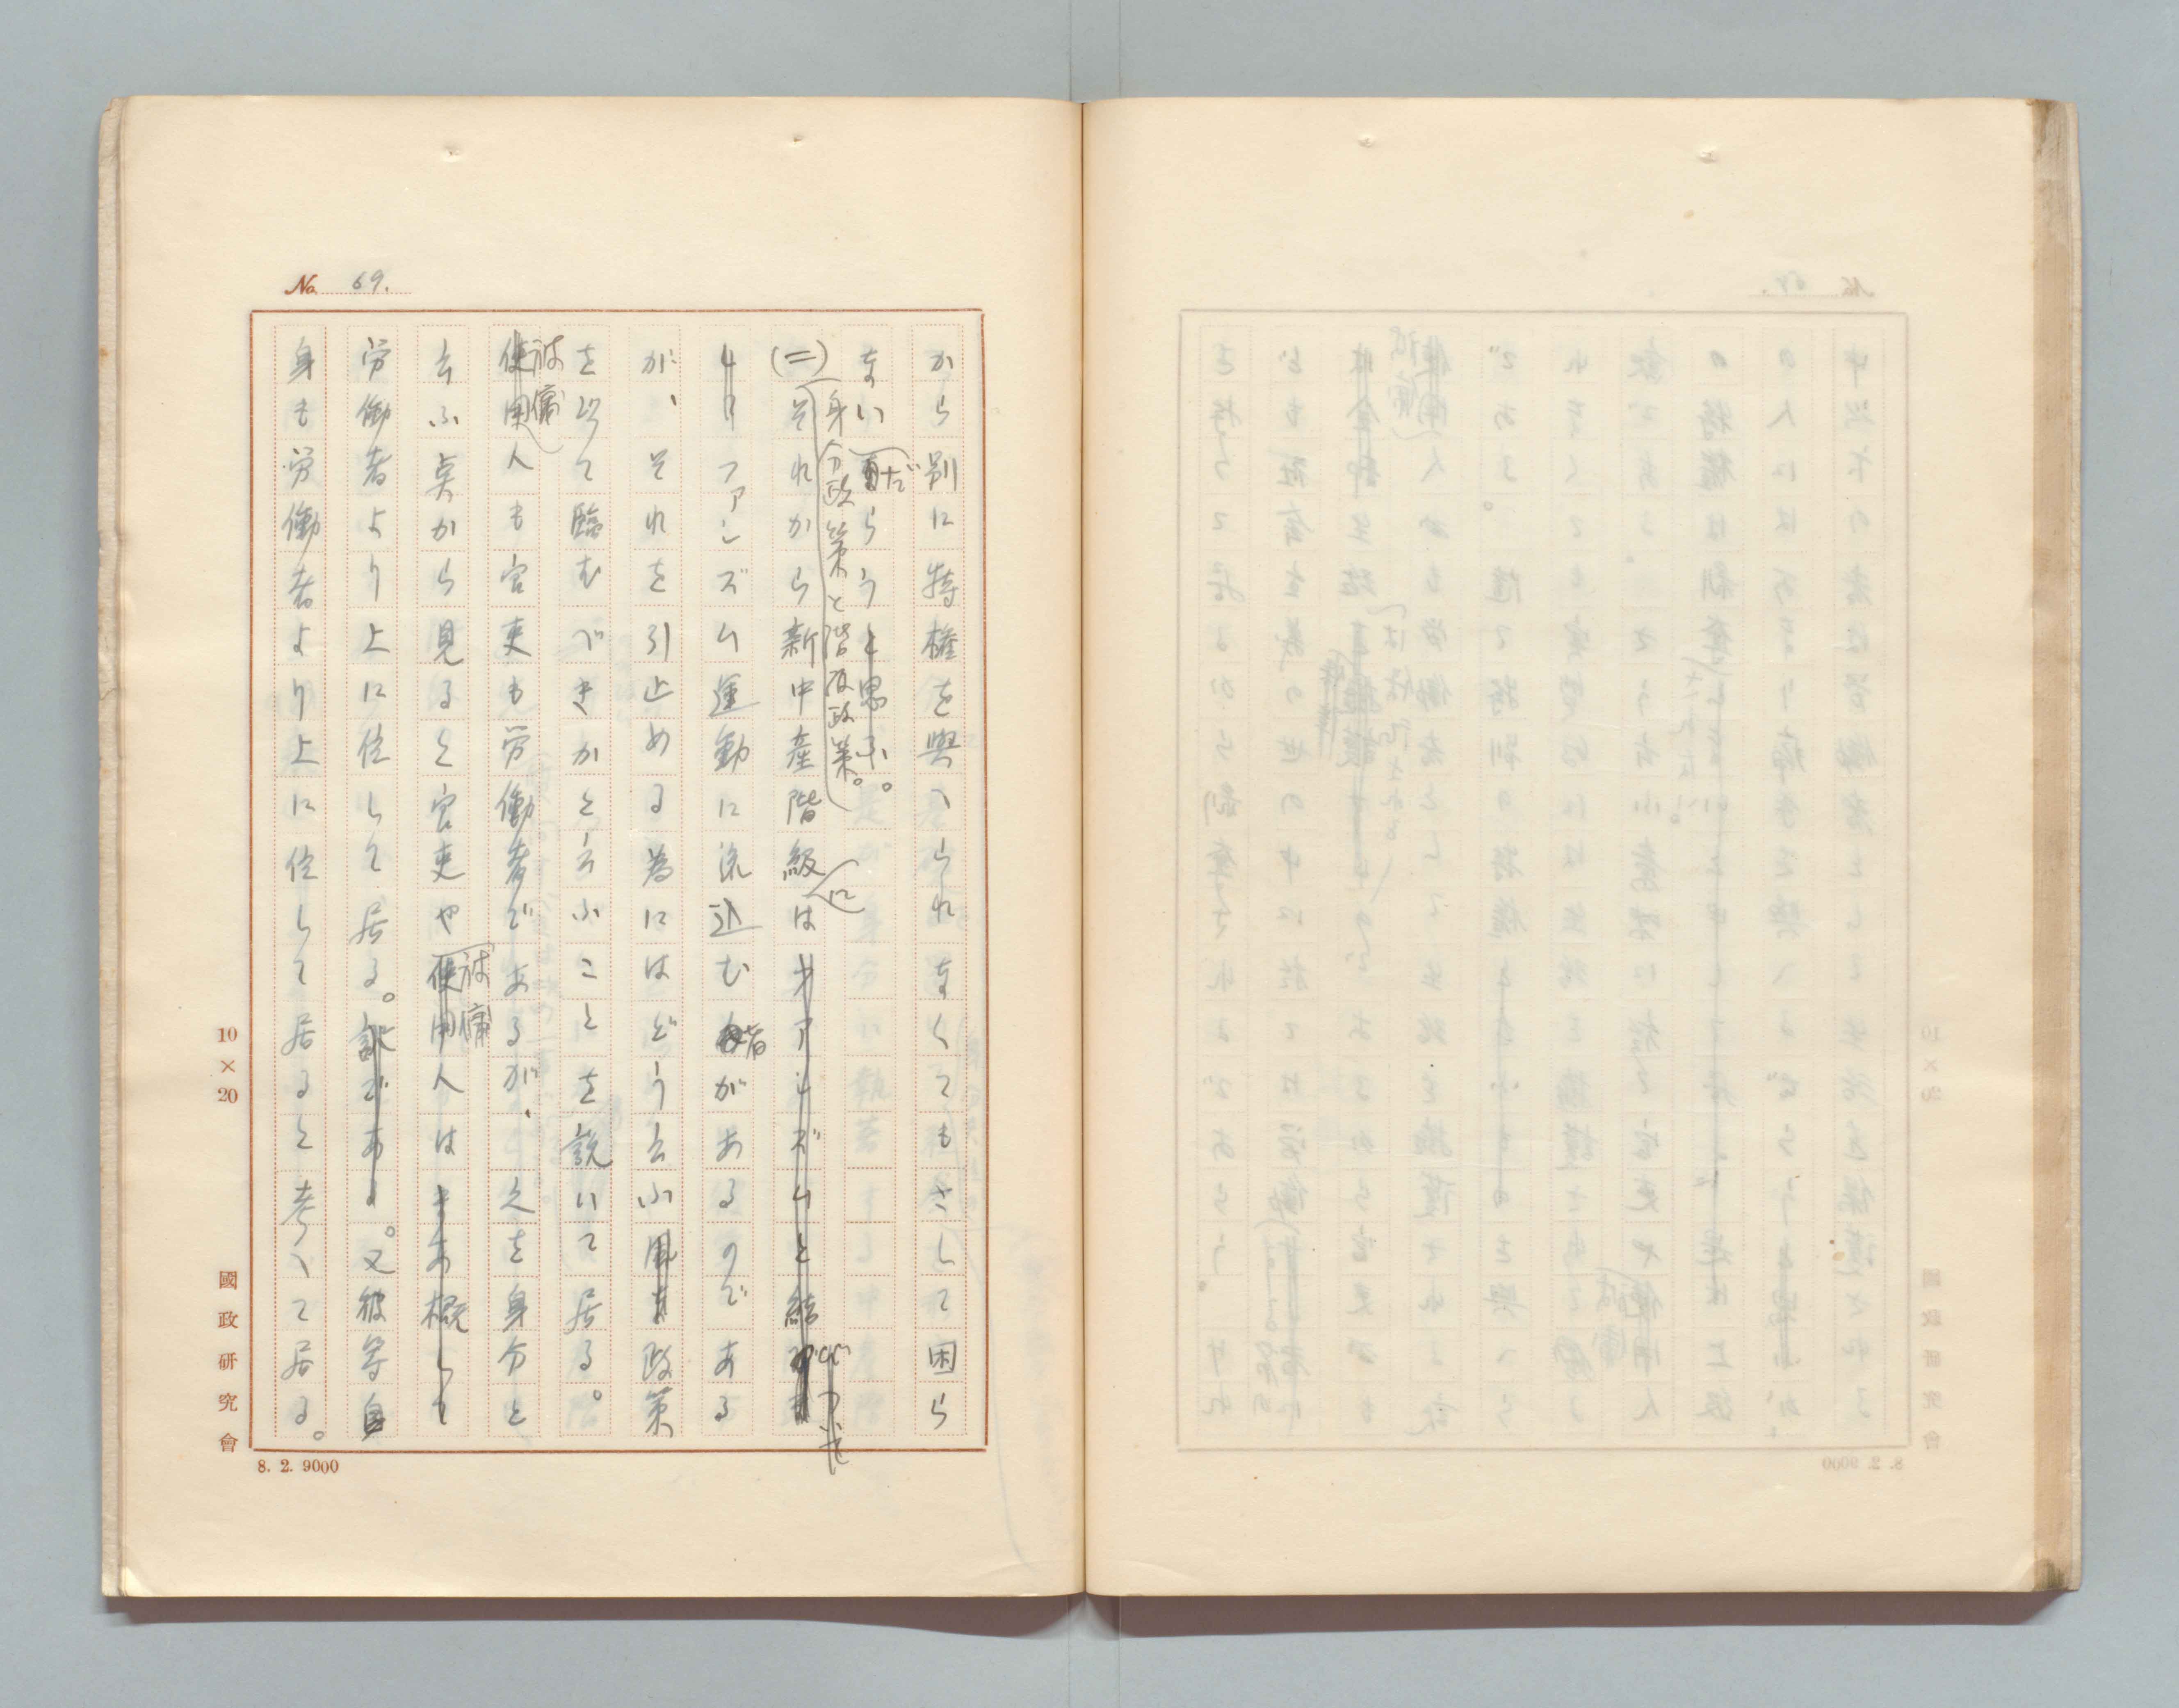 No. 69.
から別に特権を與へられなくてもさして困ら
ないだらうと思ふ。
身分政策と階級政策。
(二)それから新中産階級は
に
フアシズム運動に流込む者があるのである
が、それを引止める為にはどう云ふ政策
を以て臨むべきかと云ふことを説いて居る。
被傭
使用人も官吏も労働者であるが、之を身分と
云ふ点から見ると官吏や使用人はまあ概して
被傭
労働者より上に位して居る。訳である。又彼等自
身も労働者より上に位して居ると考へて居る。
10×20
國政研究會
8. 2. 9000